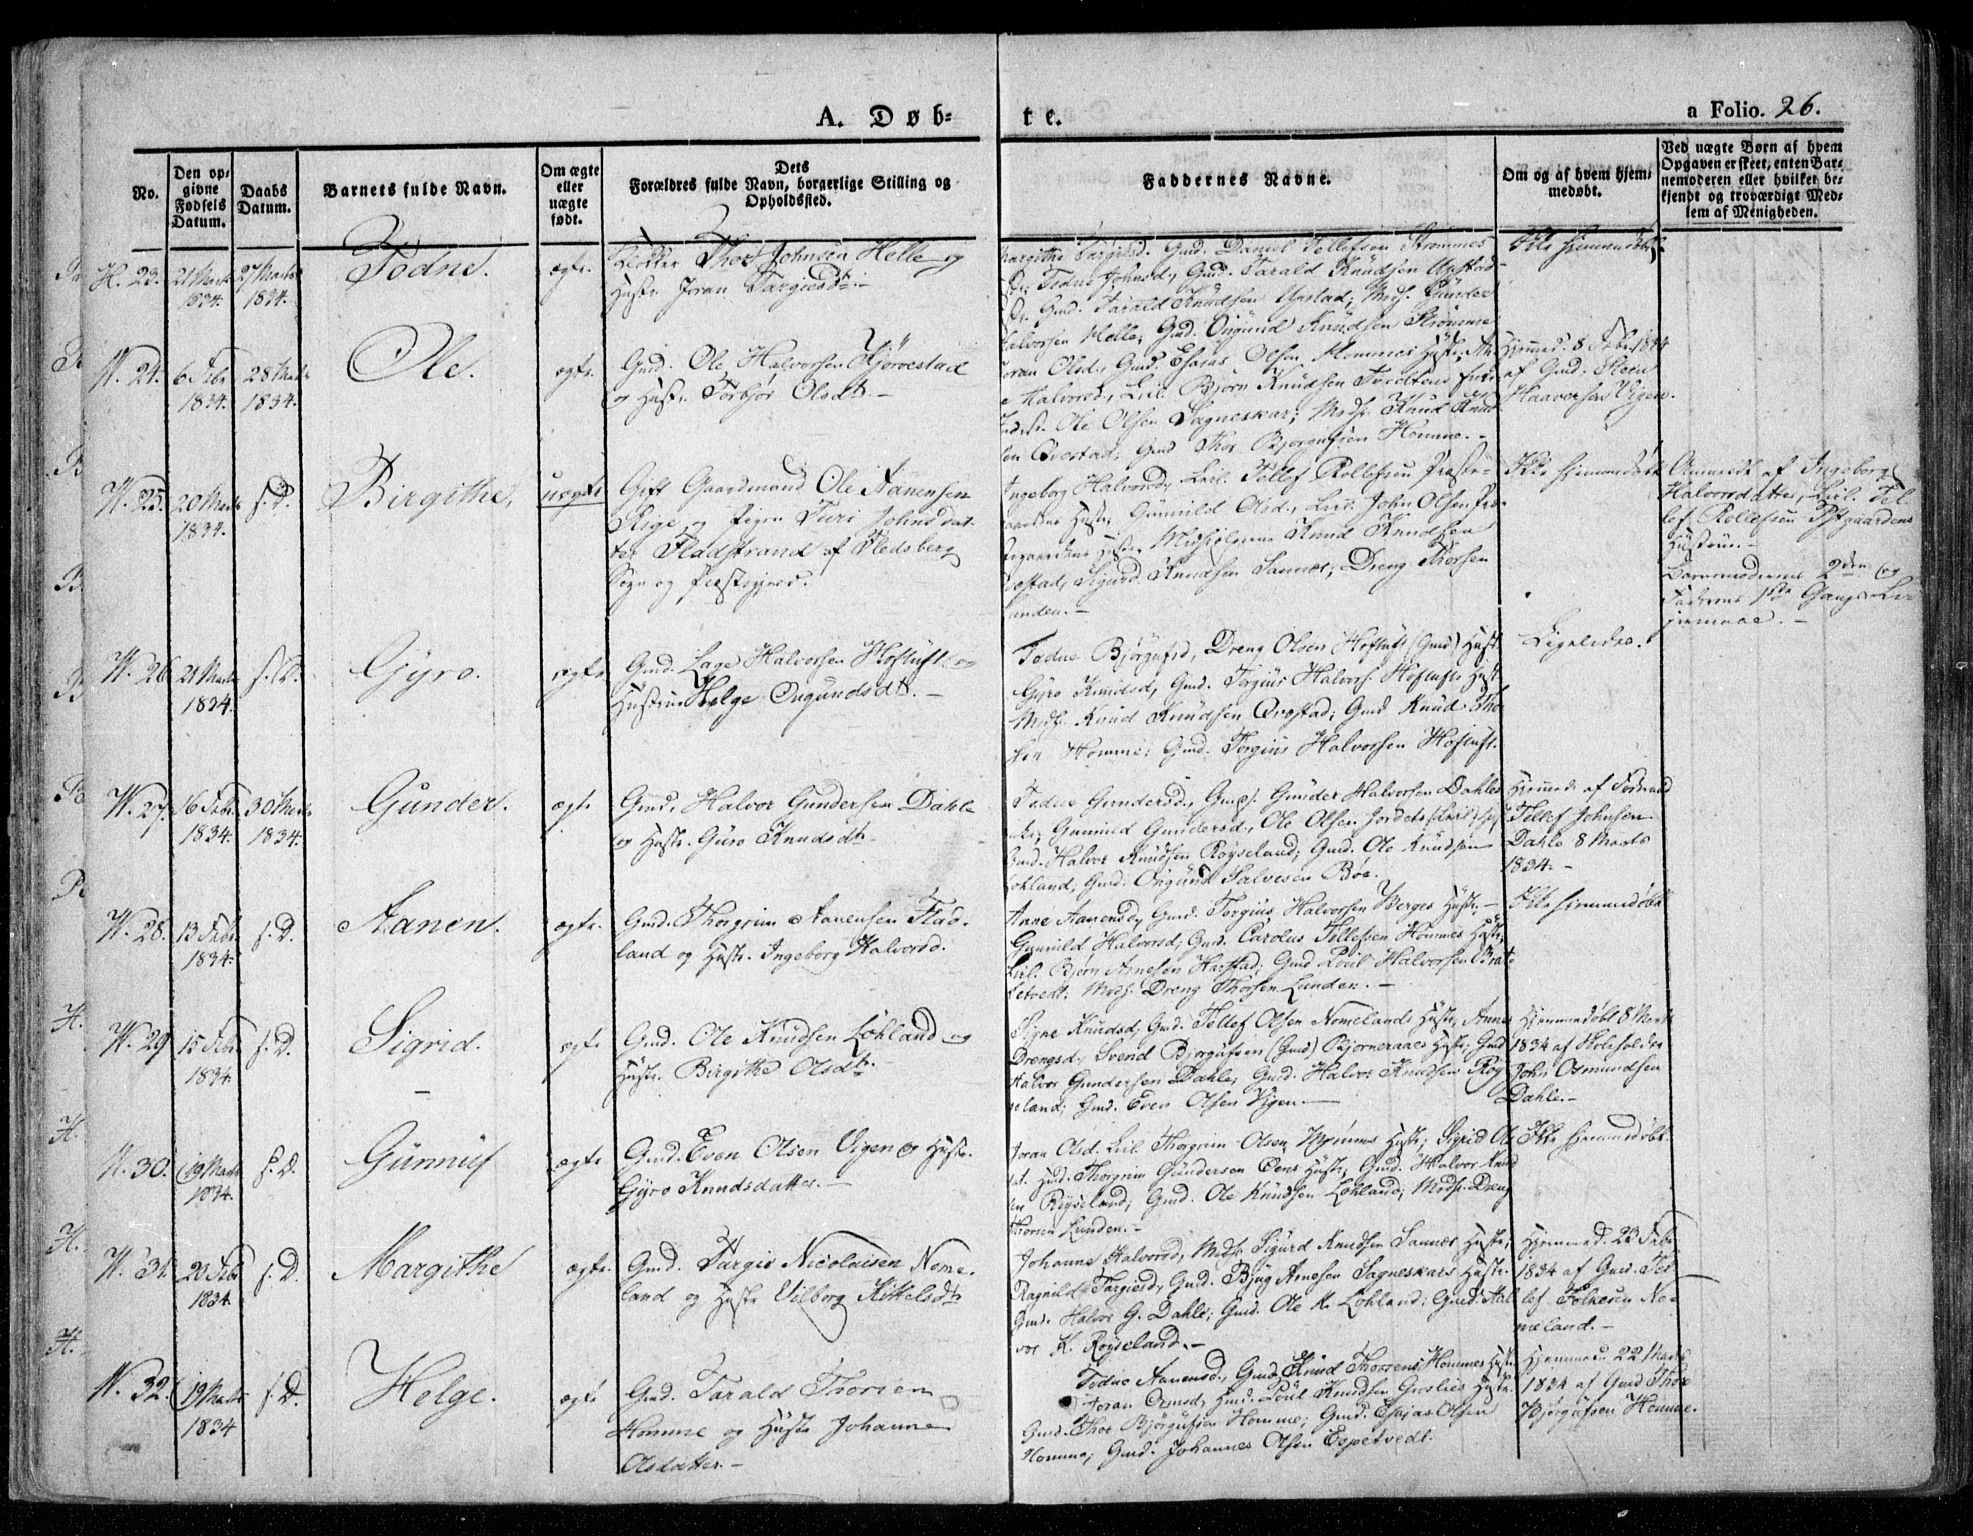 A. Døb-
te.
a Folio. 26.
No.
Den op-
givne
Fødsels
Datum.
Daabs
Datum.
Barnets fulde Navn.
Om ægte
eller
uægte
født.
Dets
Forældres fulde Navn, borgerlige Stilling og
Opholdssted.
Faddernes Navne.
Om og af hvem hjem-
medøbt.
Ved uægte Børn af hvem
Opgaven er skeet, enten Bar-
nemoderen eller hvilket be-
kjendt og troværdigt Med-
lem af Menigheden.
H. 23. 21 Marts 27 Marts
1834. 1834.
Todne.
ægte.
Klokker Thor Johnsen Helle og
Hustr. Joran Targiesdtr. -
Margithe Targiesd. Gmd. Daniel Tellefsen Strømmes
Todne Johnsd, Gmd. Tarald Knudsen Upstad
Gmd. Tarald Knudsen Upstad; Mods. Gunder
Halvorsen Helle; Gmd. Ougund Knudsen Strømme
Ikke hjemmedøbt
N. 24. 6 Febr 28 Marts
1834. 1834.
Ole.
ægte.
Gmd. Ole Halvorsen Kjørvestad
og Hustr. Torbjør Olsdtr. -
Joran Olsd., Gmd. Esaias Olsen Hommes Hustr; An
Halvorsd, Bjørn Knudsen Tvedtens
Ole Olsen Sagneskar; Mods. Knud Knud
sen Qvestad; Gmd Thor Bjorgufsen Homme. -
Hjemmed. 8 Febr. 1834
af Gmd. Steen
Haaversen Vigen.
N. 25. 20 Marts s. D.
1834.
Birgithe,
uægte
Gift Gaardmand Ole Aanensen
Rige og Pigen Turi Johnsdat-
ter Fladstrand af Fledsberg
Sogn og Præstegjeld.
Ingeborg Halvorsd, Leil. Tellef Rollefsen Præste-
gaardens Hustr, Gunvild Olsd., Leil. John Olsen Præ
stegaardens Hustr Knud Knudsen
Qvestad, Sigurd Knudsen Sannes; Dreng Thorsen
Lunden. -
Ikke hjemmedøbt
Anmeldt af Ingeborg
Halvorsdatter, Leil. Tel
lef Rollefsen Pstgaardens
Hustrue. -
Barnemoderens 2den og
Faderens 1ste Gangs Lei-
ermaal. -
N. 26 21 Marts s. D.
1834.
Gyro.
ægte
Gmd. Lage Halvorsen Hofluft og
Hustrue Helge Ougundsdtr. -
Todne Bjørgufsd, Dreng Olsen Hofluft (Gmd) Hust.
Gyro Knudsd, Gmd. Torgius Halvors. Hoflufts Hust.
Mods. Knud Knudsen Qvestad; Gmd Knud Tho
sen Homme; Gmd. Torgius Halvorsen Hofluft.
Ligeledes.
N. 27. 16 Febr 30 Marts
1834. 1834.
Gunder.
ægte
Gmd. Halvor Gundersen Dahle
og Hustr. Güro Knudsdtr
Todne Gundersd., Gmd. Gunder Halvorsen Dahles
Gunvild Gundersd., Ole Olsen Jordets
Gmd. Halvor Knudsen Røyseland; Gmd. Ole Knudsen
Lohland; Gmd. Ougund Salvesen Bøe.
Hjemmed. af Fødmd
Tellef Johnsen
Dahle 8 Marts
1834. -
N. 28. 13 Febr s. D.
1834.
Aanen.
ægte.
Gmd. Thorgrim Aanensen Flad-
land og Hustr. Ingeborg Halvorsd.
Anne Aanensd, Gmd. Torgius Halvorsen Berges Hustr. -
Gunvild Halvorsd, Gmd. Carolus Tellefsen Hommes Hustr,
Leil. Bjørn Arnesen Harstad; Gmd Poul Halvorsen Brat
letvedt. Mods. Dreng Thorsen Lunden. -
Ikke hjemmedøbt
N. 29 15 Febr s. D.
1834
Sigrid.
ægte
Gmd. Ole Knudsen Lohland og
Hustr. Birgithe Olsdtr.
Signe Knudsd, Gmd. Tellef Olsen Nomelands Hustr, Anne
Drengsd, Svend Bjorgufsen (Gmd) Bjorneraaes Hustr; Gmd
Halvor Gundersen Dahle, Gmd. Halvor Knudsen Røy
seland; Gmd. Even Olsen Vigen.
Hjemmedøbt 8 Marts
1834 af Skoleholder
John Osmundsen
Dahle. -
N. 30. 19 Marts s. D.
1834.
Gunnuf
ægte
Gmd. Even Olsen Vigen og Hustr.
Gyro Knudsdatter. -
Joran Olsd. Leil. Thorgrim Olsen Hustr; Sigrid Ols
Gmd. Thorgrim Gundersen Hustr; Gmd. Halvor Knud
sen Røyseland; Gmd. Ole Knudsen Lohland; Mods. Dreng
Thorsen Lunden. -
Ikke hjemmedøbt
N. 31. 20 Febr s. D.
1834.
Margithe
ægte.
Gmd. Targis Nicolaisen Nome-
land og Hustr Vilborg Kittelsdtr
Johanne Halvorsd, Mods. Sigurd Knudsen Sannes Hustr;
Ragnild Targiesd, Gmd. Bjug Arnesen Sagneskars Hustr.
Gmd. Halvor G. Dahle; Gmd. Ole K. Lohland; Gmd. Hal
vor K. Røyseland. -
Hjemmed. 23 Febr
1834 af Gmd. Tel
lef Folkesen No-
meland. -
N. 32. 19 Marts s. D.
1834
Helge.
ægte
Gmd. Tarald Thorsen
Homme og Hustr Johanne
Olsdatter. -
Todne Aanensd., Gmd Knud Thorsens Hommes Hustr.
Joran Ormsd, Gmd. Poul Knudsen Hustr.
Gmd. Thor Bjørgufsen Homme; Gmd. Esajas Olsen
Homme; Gmd. Johannes Olsen Espetvedt.
Hjemmed. 22 Marts
1834 af Gmd Thor
Bjørgufsen Homme.